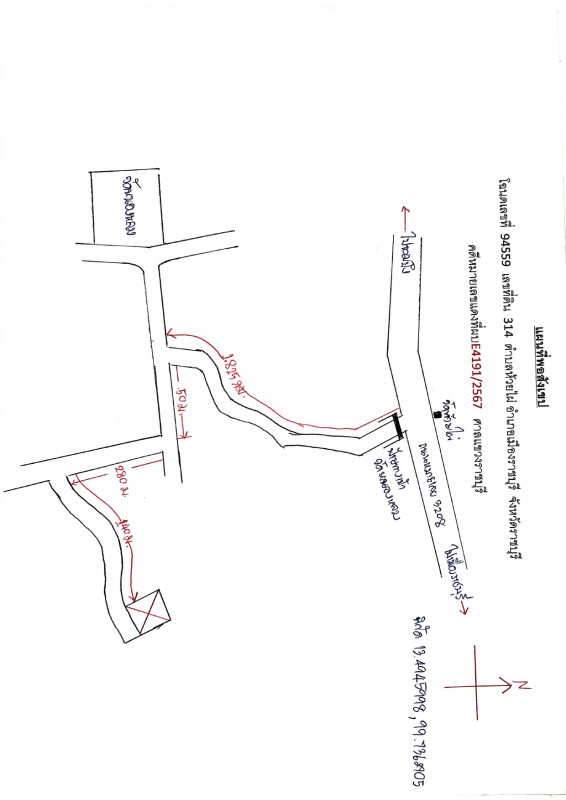 แผนที่พอสังเขป
โฉนดเลขที่ 94559 เลขที่ดิน 314 ตำบลห้วยไผ่ อำเภอเมืองราชบุรี จังหวัดราชบุรี
คดีหมายเลขแดงที่ผบE4191/2567 ศาลแขวงราชบุรี
N
ไปจอมบึง
วัดห้วยไผ่
ถนนหมายเลข 3208
ไปเมืองราชบุรี
ป้ายทางเข้า
พิกัด 13.4945998, 99.7368905
1.825 กม.
50 ม.
280 ม.
140 ม.